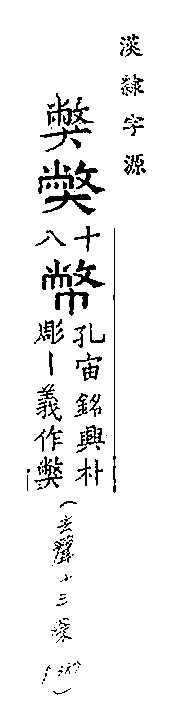 漢隸字源
獘
獘
十八
幣
孔宙銘興朴
彫｜義作獘
(去聲十三祭